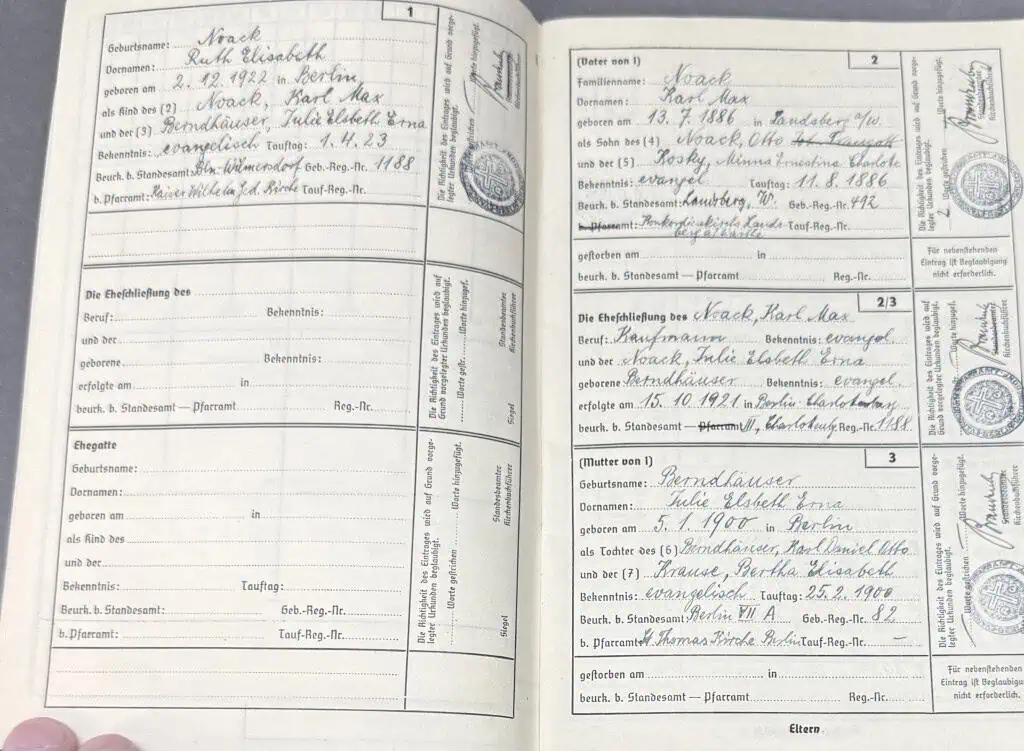 1
Geburtsname: Noack
Vornamen: Ruth Elisabeth
geboren am 2. 12. 1922 in Berlin
als Kind des (2) Noack, Karl Max
und der (3) Berndhäuser, Julie Elsbeth Erna
Bekenntnis: evangelisch Tauftag: 1. 4. 23
Beurk. b. Standesamt: Bln. Wilmersdorf Geb.-Reg.-Nr. 1188
b. Pfarramt: Kaiser Wilhelm Ged. Kirche Tauf-Reg.-Nr.
Die Richtigkeit des Eintrages wird auf Grund vorge-
legter Urkunden beglaubigt.
Worte hinzugefügt.
Die Eheschließung des
Beruf: Bekenntnis:
und der
geborene Bekenntnis:
erfolgte am in
beurk. b. Standesamt — Pfarramt Reg.-Nr.
Die Richtigkeit des Eintrages wird auf
Grund vorgelegter Urkunden beglaubigt.
Worte gestr. Worte hinzugef.
Standesbeamter
Kirchenbuchführer
Siegel
Ehegatte
Geburtsname:
Vornamen:
geboren am in
als Kind des
und der
Bekenntnis: Tauftag:
Beurk. b. Standesamt: Geb.-Reg.-Nr.
b. Pfarramt: Tauf-Reg.-Nr.
Die Richtigkeit des Eintrages wird auf Grund vorge-
legter Urkunden beglaubigt.
Worte gestrichen Worte hinzugefügt.
Standesbeamter
Kirchenbuchführer
Siegel
(Vater von 1) 2
Familienname: Noack
Vornamen: Karl Max
geboren am 13. 7. 1886 in Landsberg a/W.
als Sohn des (4) Noack, Otto
und der (5) Kosky, Minna Ernestine Charlotte
Bekenntnis: evangel. Tauftag: 11. 8. 1886
Beurk. b. Standesamt: Landsberg, W. Geb.-Reg.-Nr. 492
b. Pfarramt: Konkordienkirche Lands- Tauf-Reg.-Nr.
Die Richtigkeit des Eintrages wird auf Grund vorge-
legter Urkunden beglaubigt.
2 Worte gestrichen Worte hinzugefügt.
gestorben am in
beurk. b. Standesamt — Pfarramt Reg.-Nr.
Für nebenstehenden
Eintrag ist Beglaubigung
nicht erforderlich.
2/3
Die Eheschließung des Noack, Karl Max
Beruf: Kaufmann Bekenntnis: evangel.
und der Noack, Julie Elsbeth Erna
geborene Berndhäuser Bekenntnis: evangel.
erfolgte am 15. 10. 1921 in Berlin-Charlottenburg
beurk. b. Standesamt — Pfarramt III, Charlottenbg Reg.-Nr. 1188.
Die Richtigkeit des Eintrages wird auf
Grund vorgelegter Urkunden beglaubigt.
(Mutter von 1) 3
Geburtsname: Berndhäuser
Vornamen: Julie Elsbeth Erna
geboren am 5. 1. 1900 in Berlin
als Tochter des (6) Berndhäuser, Karl Daniel Otto
und der (7) Krause, Bertha Elisabeth
Bekenntnis: evangelisch Tauftag: 25. 2. 1900
Beurk. b. Standesamt: Berlin VII A Geb.-Reg.-Nr. 82
b. Pfarramt: St Thomas Kirche Berlin Tauf-Reg.-Nr. —
Die Richtigkeit des Eintrages wird auf Grund vorge-
legter Urkunden beglaubigt.
Worte gestrichen Worte hinzugefügt.
gestorben am in
beurk. b. Standesamt — Pfarramt Reg.-Nr.
Für nebenstehenden
Eintrag ist Beglaubigung
nicht erforderlich.
Eltern